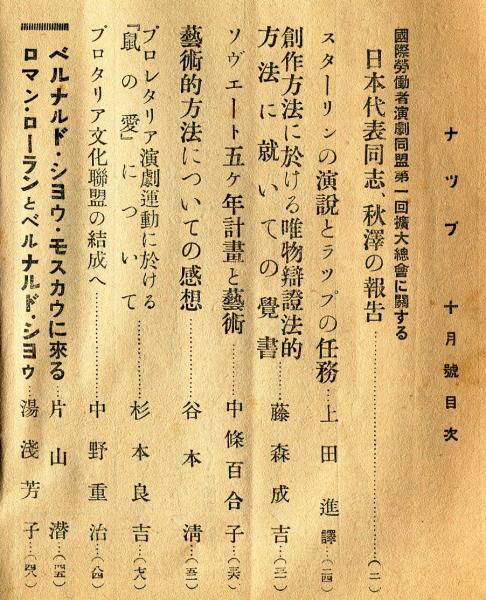 ナップ 十月號目次
國際勞働者演劇同盟第一回擴大總會に關する
日本代表同志、秋澤の報告……(二)
スターリンの演説とラップの任務…上田進譯…(二四)
創作方法に於ける唯物辯證法的
方法に就いての覺書…藤森成吉…(三一)
ソヴエート五ケ年計畫と藝術…中條百合子…(三六)
藝術的方法についての感想…谷本淸…(五二)
プロレタリア演劇運動に於ける
『鼠の愛』について……杉本良吉…(七六)
プロタリア文化聯盟の結成へ……中野重治…(八四)
ベルナルド・シヨウ・モスカウに來る…片山潜…(四五)
ロマン・ローランとベルナルド・シヨウ…湯淺芳子…(四八)